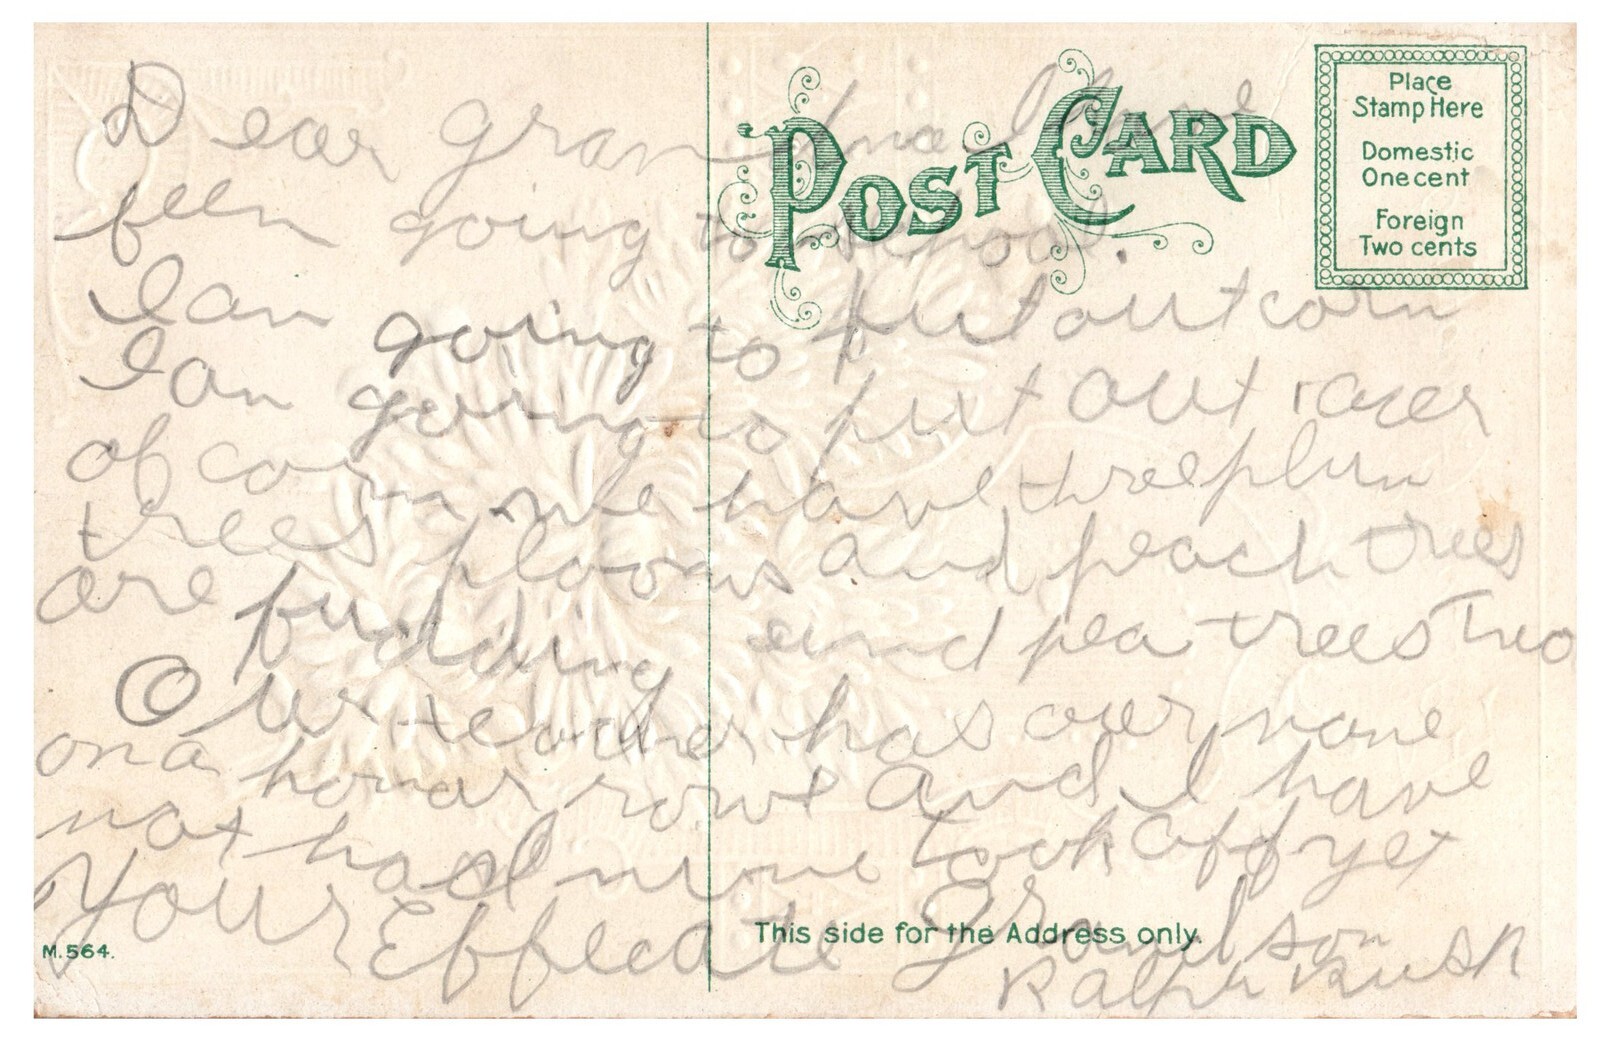 Dear grandma I have
been going to school.
I an going to put out corn
I an going to put out acer
of corn we have three plum
trees plooms and peach trees
are budding and pea trees Two
Our teacher has over none
on a honor rowl and I have
not had none took off yet
Your Effecate grandson
Ralph Rush
POST CARD
Place
Stamp Here
Domestic
One cent
Foreign
Two cents
This side for the Address only.
M.564.